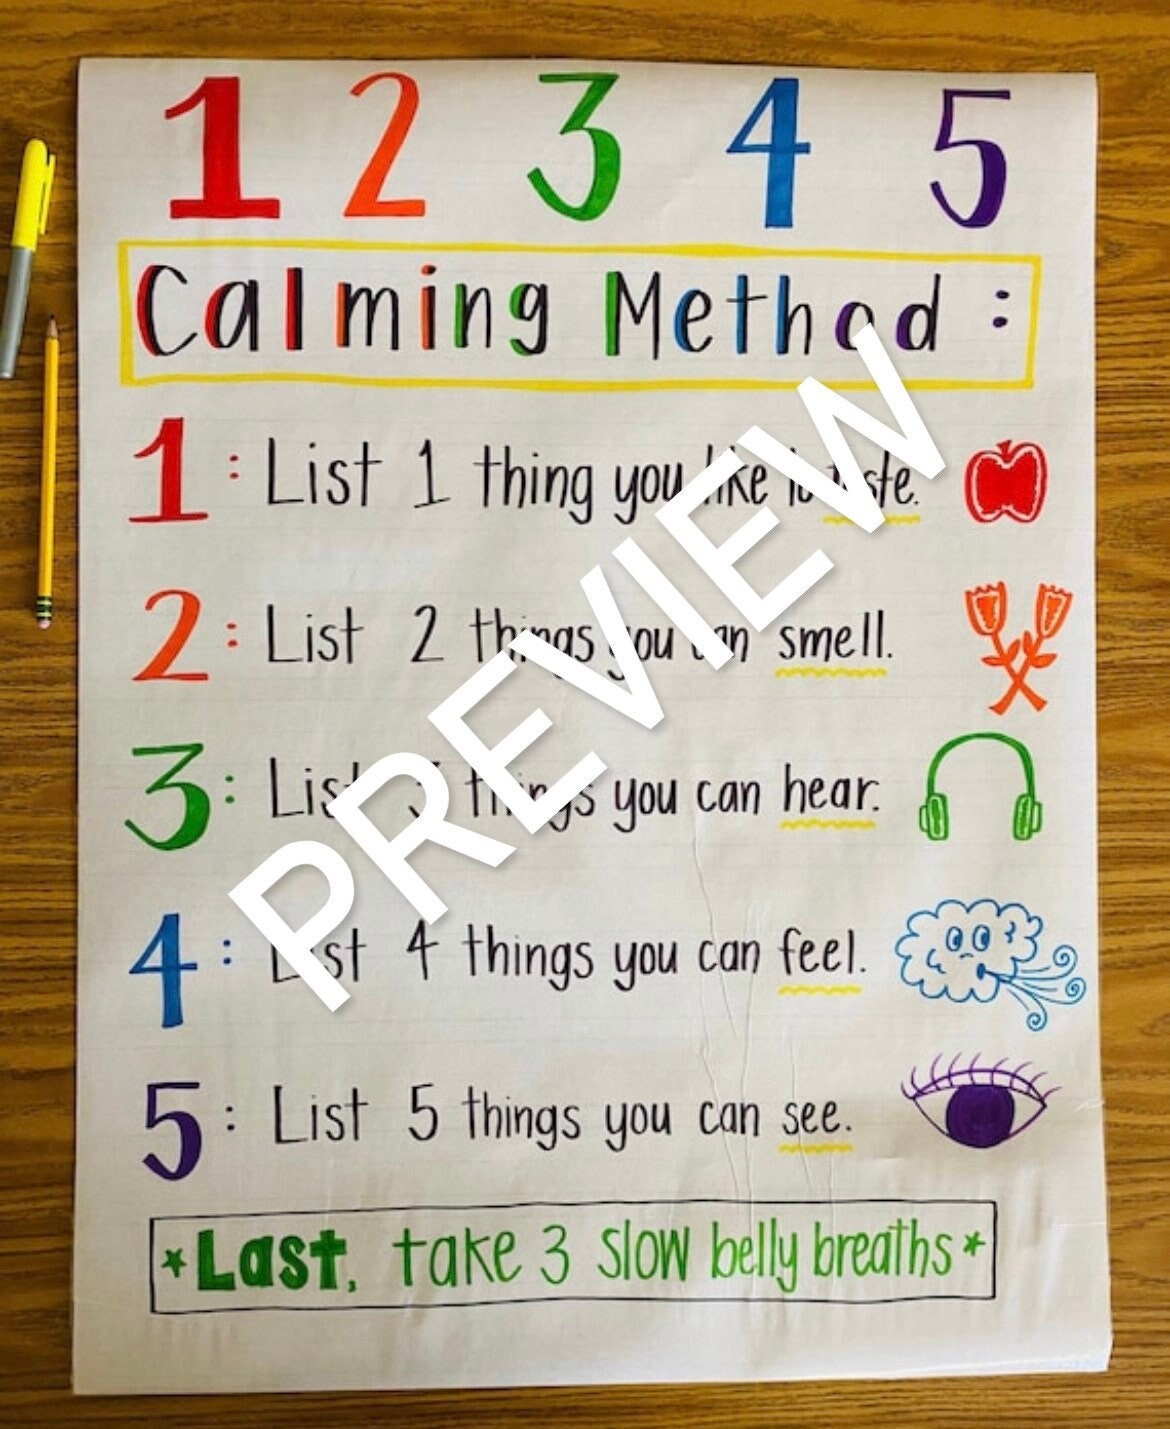 1 2 3 4 5
Calming Method :
1: List 1 thing you like to taste.
2: List 2 things you can smell.
3: List 3 things you can hear.
4: List 4 things you can feel.
5: List 5 things you can see.
*Last, take 3 slow belly breaths*
PREVIEW